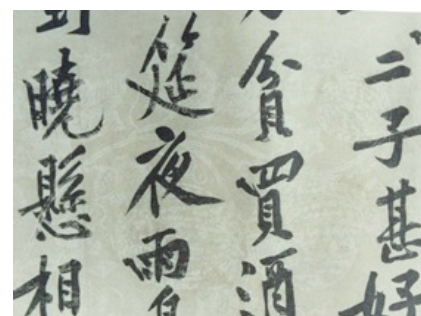 二子甚好
貧買酒
筵夜雨
曉懸相